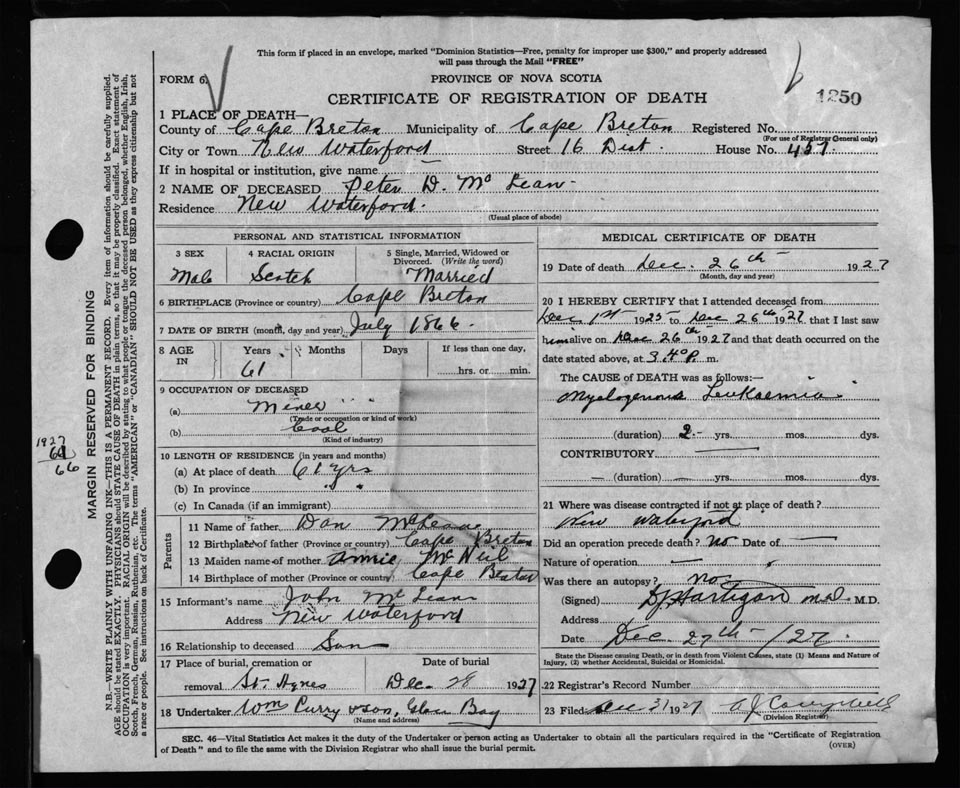 This form if placed in an envelope, marked "Dominion Statistics—Free, penalty for improper use $300," and properly addressed
will pass through the Mail "FREE"
FORM 6.
PROVINCE OF NOVA SCOTIA
CERTIFICATE OF REGISTRATION OF DEATH
1250
1 PLACE OF DEATH—
County of Cape Breton Municipality of Cape Breton Registered No.
(For use of Registrar General only)
City or Town New Waterford Street 16 Dist. House No. 457.
If in hospital or institution, give name —
2 NAME OF DECEASED Peter D. Mc Lean.
Residence New Waterford.
(Usual place of abode)
PERSONAL AND STATISTICAL INFORMATION
3 SEX 4 RACIAL ORIGIN 5 Single, Married, Widowed or
Divorced. (Write the word)
Male Scotch Married
6 BIRTHPLACE (Province or country) Cape Breton
7 DATE OF BIRTH (month, day and year) July 1866.
8 AGE IN Years Months Days If less than one day,
61 hrs. or min.
9 OCCUPATION OF DECEASED
(a) Miner
(Trade or occupation or kind of work)
(b) Coal
(Kind of industry)
10 LENGTH OF RESIDENCE (in years and months)
(a) At place of death 61 yrs
(b) In province " "
(c) In Canada (if an immigrant)
Parents
11 Name of father Dan McLean
12 Birthplace of father (Province or country) Cape Breton
13 Maiden name of mother Annie McNeil
14 Birthplace of mother (Province or country) Cape Breton
15 Informant's name John Mc Lean
Address New Waterford
16 Relationship to deceased Son
17 Place of burial, cremation or Date of burial
removal St. Agnes Dec. 28 1927
18 Undertaker Wm Curry & Son, Glace Bay
(Name and address)
MEDICAL CERTIFICATE OF DEATH
19 Date of death Dec. 26th 1927
(Month, day and year)
20 I HEREBY CERTIFY that I attended deceased from
Dec 1st 1925 to Dec 26th 1927 that I last saw
him alive on Dec 26th 1927 and that death occurred on the
date stated above, at 3.40 P. m.
The CAUSE OF DEATH was as follows:—
Myelogenous Leukaemia
(duration) 2 yrs. mos. dys.
CONTRIBUTORY —
(duration) — yrs. — mos. — dys.
21 Where was disease contracted if not at place of death?
New Waterford
Did an operation precede death? No Date of —
Nature of operation —
Was there an autopsy? No
(Signed) Hartigan M.D. M.D.
Address
Date Dec 27th /27.
State the Disease causing Death, or in death from Violent Causes, state (1) Means and Nature of
Injury, (2) whether Accidental, Suicidal or Homicidal.
22 Registrar's Record Number
23 Filed Dec 31 1927 A J Campbell
(Division Registrar)
SEC. 46—Vital Statistics Act makes it the duty of the Undertaker or person acting as Undertaker to obtain all the particulars required in the "Certificate of Registration
of Death" and to file the same with the Division Registrar who shall issue the burial permit.
(OVER)
MARGIN RESERVED FOR BINDING
N.B.—WRITE PLAINLY WITH UNFADING INK—THIS IS A PERMANENT RECORD. Every item of information should be carefully supplied.
AGE should be stated EXACTLY. PHYSICIANS should STATE CAUSE OF DEATH in plain terms, so that it may be properly classified. Exact statement of
OCCUPATION is very important. RACIAL ORIGIN will be described by stating to what people or tongue the deceased person belonged, whether English, Irish,
Scotch, French, German, Russian, Ruthenian, etc. The terms "AMERICAN" or "CANADIAN" SHOULD NOT BE USED as they express citizenship but not
a race or people. See instructions on back of Certificate.
1927
61
66